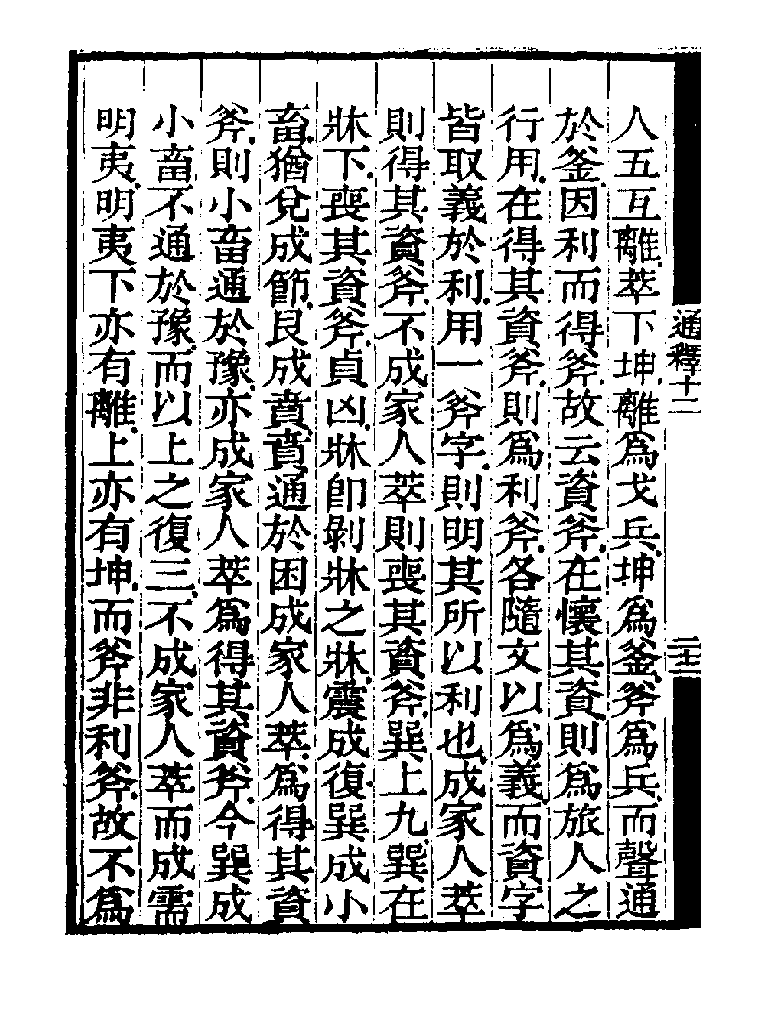 通釋十二
二十二
人五互離萃下坤離爲戈兵坤爲釜斧爲兵而聲通
於釜因利而得斧故云資斧在懷其資則爲旅人之
行用在得其資斧則爲利斧各隨文以爲義而資字
皆取義於利用一斧字則明其所以利也成家人萃
則得其資斧不成家人萃則喪其資斧巽上九巽在
牀下喪其資斧貞凶牀卽剝牀之牀震成復巽成小
畜猶兌成節艮成賁賁通於困成家人萃爲得其資
斧則小畜通於豫亦成家人萃爲得其資斧今巽成
小畜不通於豫而以上之復三不成家人萃而成需
明夷明夷下亦有離上亦有坤而斧非利斧故不爲